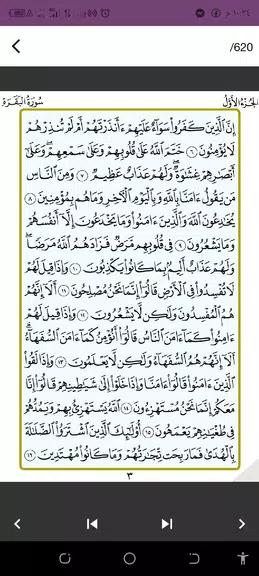 ١٠:٢٤
/620
الجزء الأول
سورة البقرة
إِنَّ ٱلَّذِينَ كَفَرُوا۟ سَوَآءٌ عَلَيْهِمْ ءَأَنذَرْتَهُمْ أَمْ لَمْ تُنذِرْهُمْ
لَا يُؤْمِنُونَ ٦ خَتَمَ ٱللَّهُ عَلَىٰ قُلُوبِهِمْ وَعَلَىٰ سَمْعِهِمْ ۖ وَعَلَىٰٓ
أَبْصَٰرِهِمْ غِشَٰوَةٌ ۖ وَلَهُمْ عَذَابٌ عَظِيمٌ ٧ وَمِنَ ٱلنَّاسِ
مَن يَقُولُ ءَامَنَّا بِٱللَّهِ وَبِٱلْيَوْمِ ٱلْءَاخِرِ وَمَا هُم بِمُؤْمِنِينَ ٨
يُخَٰدِعُونَ ٱللَّهَ وَٱلَّذِينَ ءَامَنُوا۟ وَمَا يَخْدَعُونَ إِلَّآ أَنفُسَهُمْ
وَمَا يَشْعُرُونَ ٩ فِى قُلُوبِهِم مَّرَضٌ فَزَادَهُمُ ٱللَّهُ مَرَضًا ۖ
وَلَهُمْ عَذَابٌ أَلِيمٌۢ بِمَا كَانُوا۟ يَكْذِبُونَ ١٠ وَإِذَا قِيلَ لَهُمْ
لَا تُفْسِدُوا۟ فِى ٱلْأَرْضِ قَالُوٓا۟ إِنَّمَا نَحْنُ مُصْلِحُونَ ١١ أَلَآ إِنَّهُمْ
هُمُ ٱلْمُفْسِدُونَ وَلَٰكِن لَّا يَشْعُرُونَ ١٢ وَإِذَا قِيلَ لَهُمْ
ءَامِنُوا۟ كَمَآ ءَامَنَ ٱلنَّاسُ قَالُوٓا۟ أَنُؤْمِنُ كَمَآ ءَامَنَ ٱلسُّفَهَآءُ ۗ
أَلَآ إِنَّهُمْ هُمُ ٱلسُّفَهَآءُ وَلَٰكِن لَّا يَعْلَمُونَ ١٣ وَإِذَا لَقُوا۟
ٱلَّذِينَ ءَامَنُوا۟ قَالُوٓا۟ ءَامَنَّا وَإِذَا خَلَوْا۟ إِلَىٰ شَيَٰطِينِهِمْ قَالُوٓا۟ إِنَّا
مَعَكُمْ إِنَّمَا نَحْنُ مُسْتَهْزِءُونَ ١٤ ٱللَّهُ يَسْتَهْزِئُ بِهِمْ وَيَمُدُّهُمْ
فِى طُغْيَٰنِهِمْ يَعْمَهُونَ ١٥ أُو۟لَٰٓئِكَ ٱلَّذِينَ ٱشْتَرَوُا۟ ٱلضَّلَٰلَةَ
بِٱلْهُدَىٰ فَمَا رَبِحَت تِّجَٰرَتُهُمْ وَمَا كَانُوا۟ مُهْتَدِينَ ١٦
٣